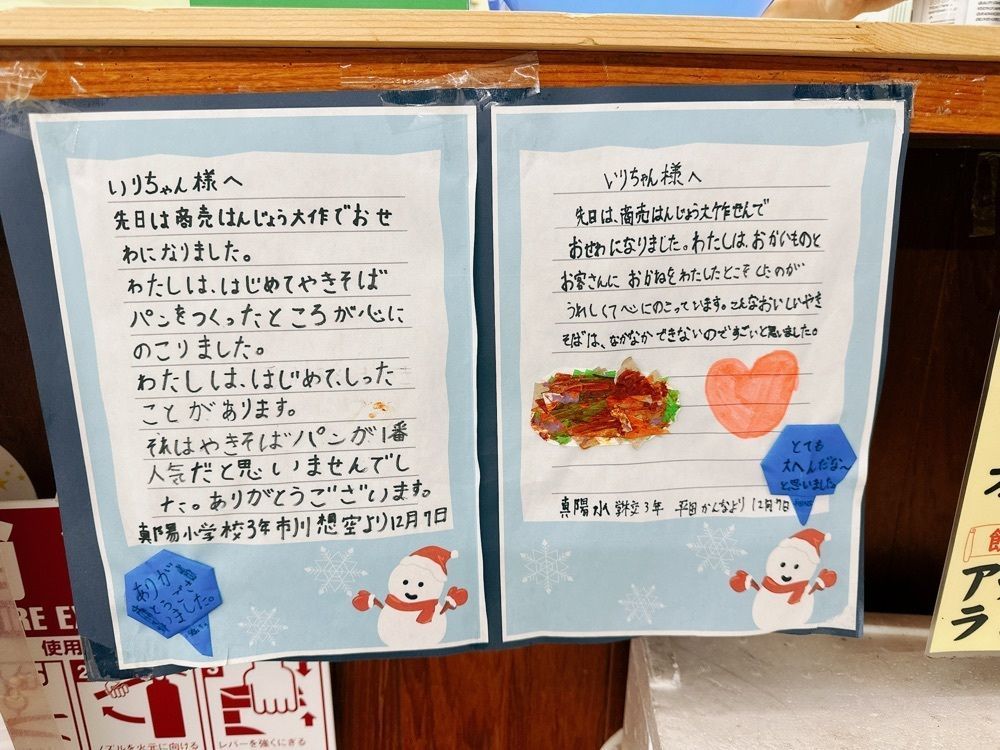 いりちゃん様へ
先日は商売はんじょう大作でおせ
わになりました。
わたしは、はじめてやきそば
パンをつくったところが心に
のこりました。
わたしは、はじめて、しった
ことがあります。
それはやきそばパンが1番
人気だと思いませんでし
た。ありがとうございます。
真陽小学校3年市川想空より12月7日
ありが
とうござい
ました。
いりちゃん様へ
先日は、商売はんじょう大作せんで
おせわになりました。わたしは、おかいものと
お客さんにおかねをわたしたとこそしたのが
うれしくて心にのこっています。こんなおいしいやき
そばは、なかなかできないのですごいと思いました。
とても
大へんだな〜
と思いました
真陽小学校3年 平田かんなより 12月7日
RE E
使用
2
ノズルを火元に向ける
レバーを強くにぎる
ア
ラ